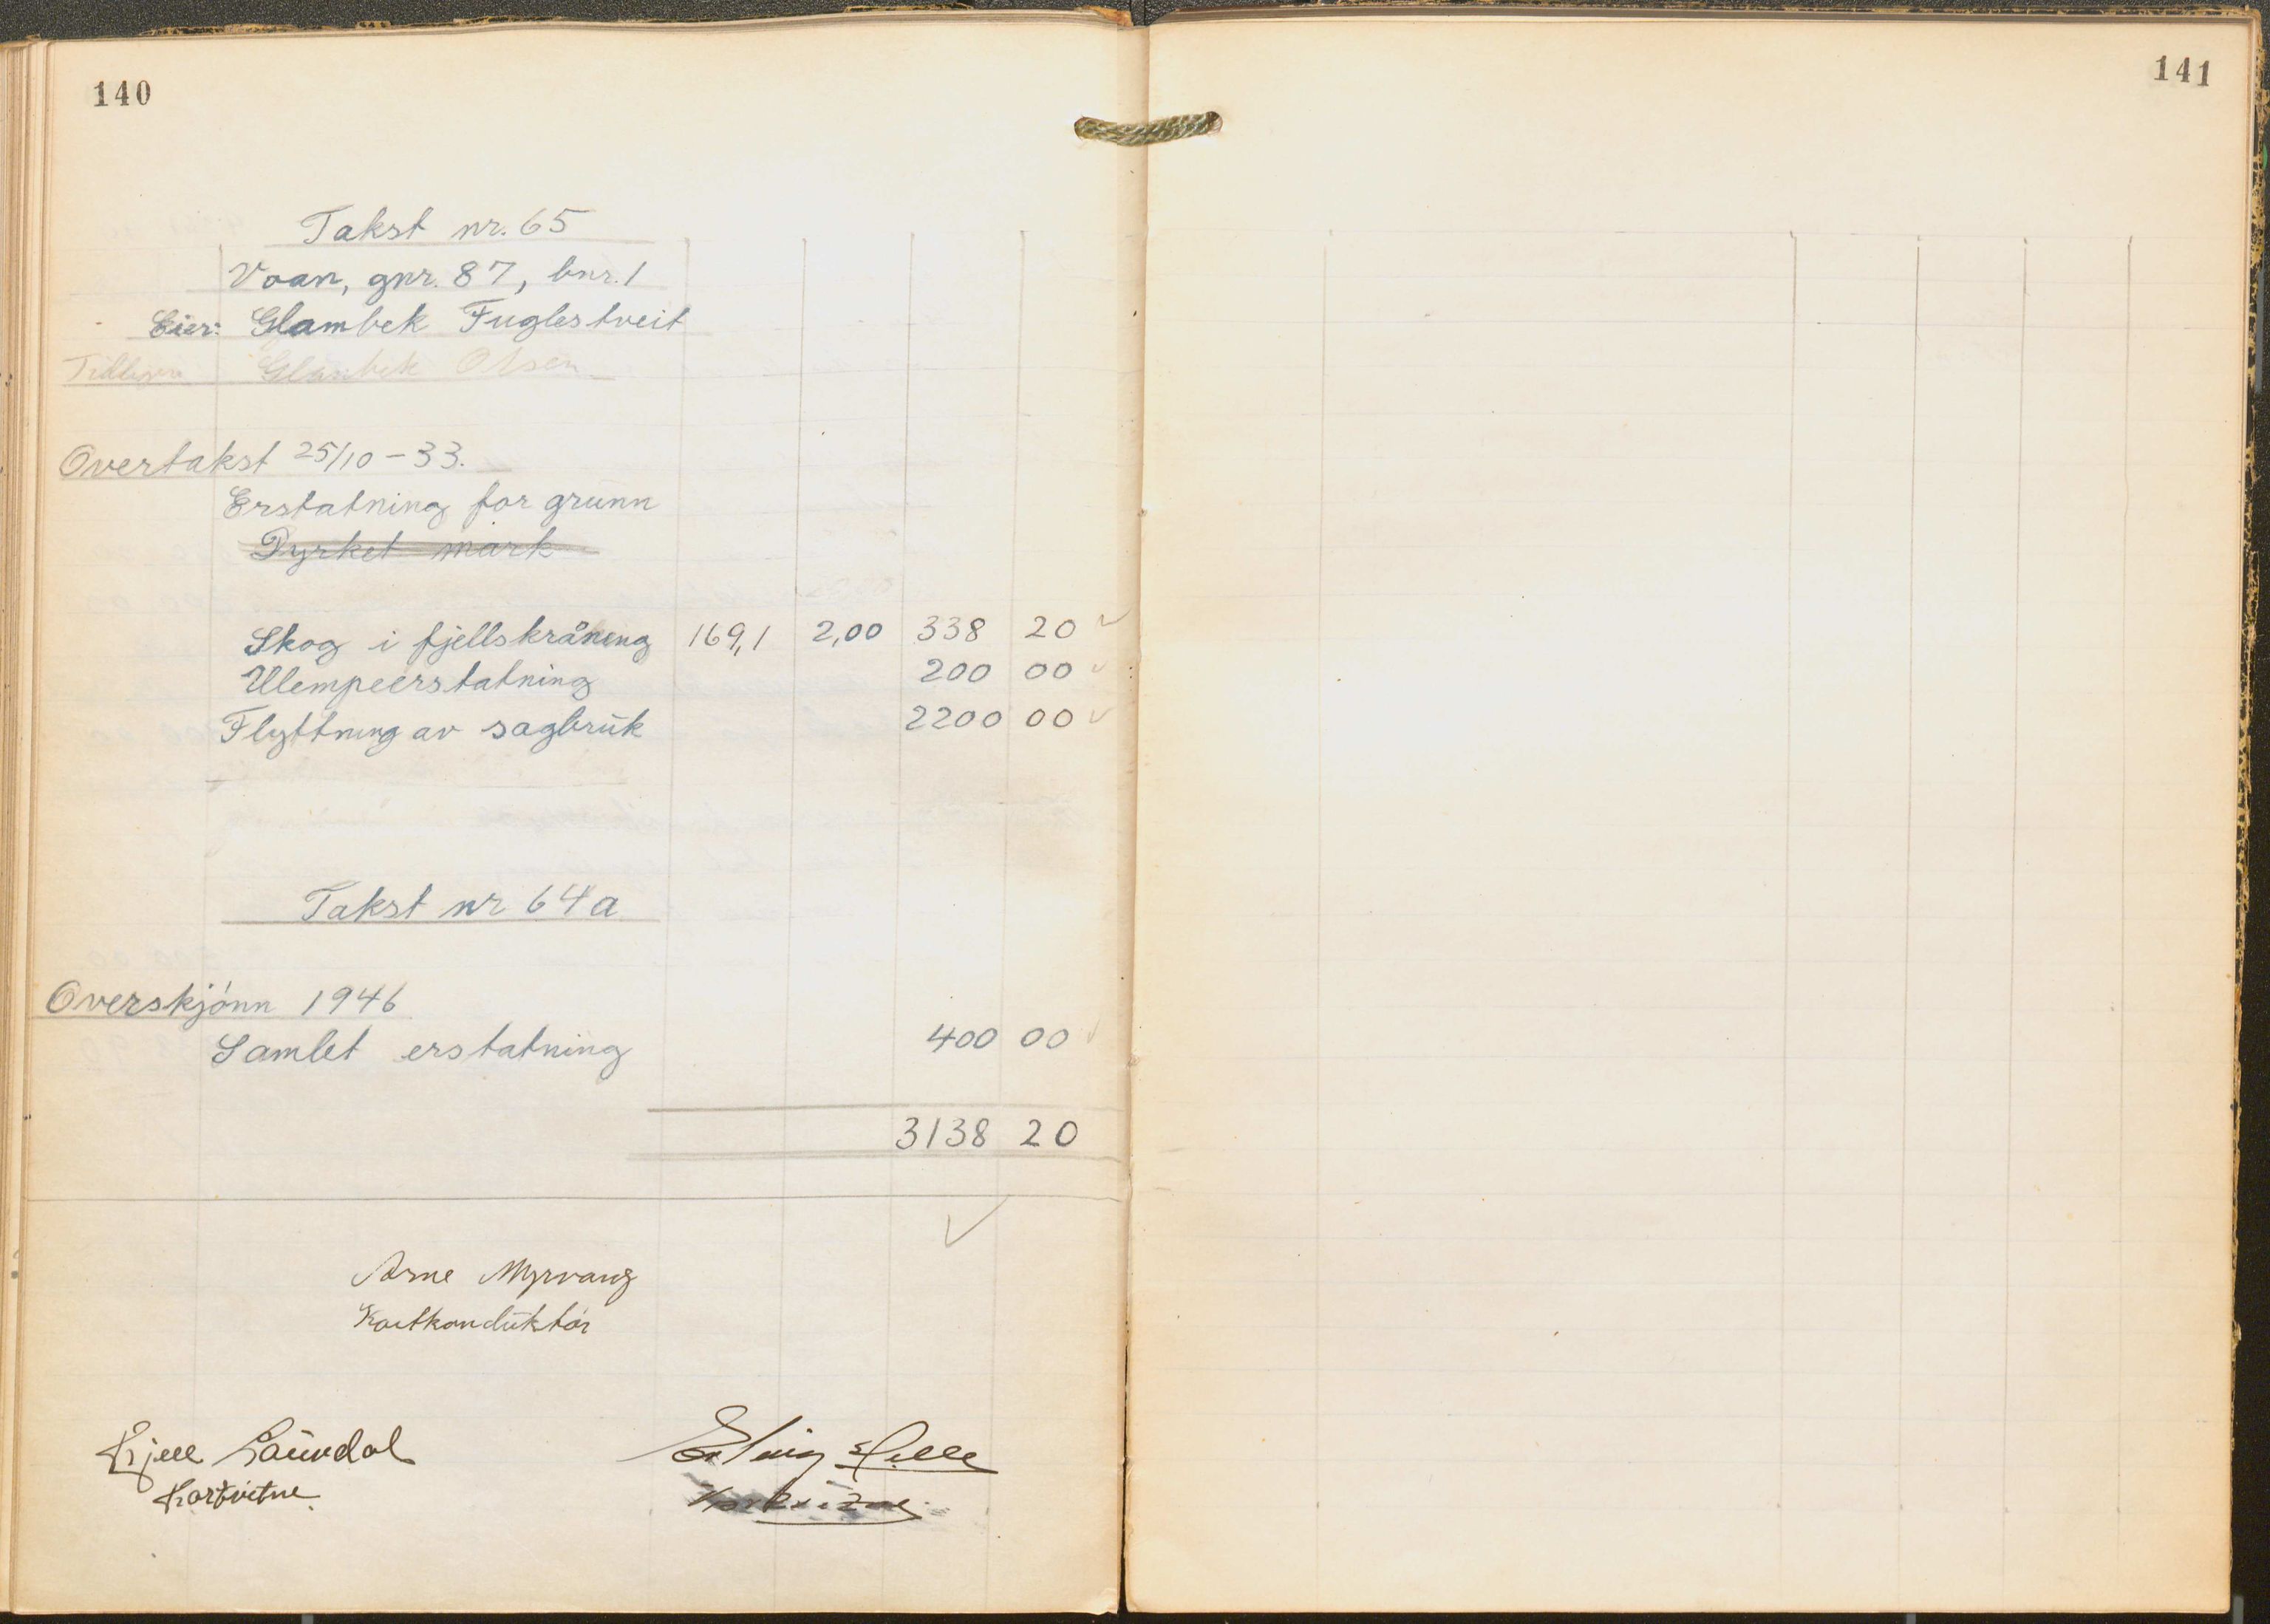 140
Takst nr. 65
Voan, gnr. 87, bnr. 1
Eier: Glambek Fuglestveit
Tidligere Glambek Olsen
Overtakst 25/10-33.
Erstatning for grunn
Dyrket mark
Skog i fjellskråning 169,1 2,00 338 20 ✓
Ulempeerstatning 200 00 ✓
Flyttning av sagbruk 2200 00 ✓
Takst nr 64a
Overskjønn 1946
Samlet erstatning 400 00 ✓
3138 20
✓
Arne Myrvang
Kartkonduktør
Kjell Laurdal Erling Helle
Kartvitne. Kartvitne.
141